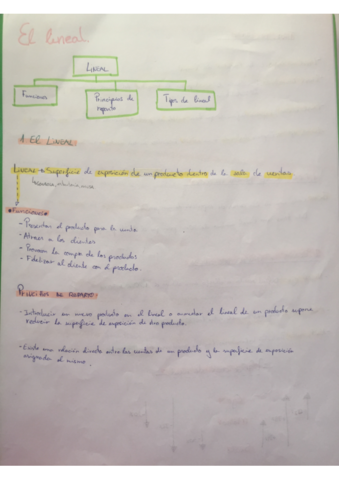 El lineal
LINEAL
Funciones
Principios de reparto
Tipos de lineal
1. EL LINEAL:
LINEAL → Superficie de exposición de un producto dentro de la sala de ventas
FUNCIONES
- Presentar el producto para la venta
- Atraer a los clientes
- Provocar la compra de los productos
- Fidelizar al cliente con el producto.
PRINCIPIOS DE REPARTO:
- Introducir un nuevo producto en el lineal o aumentar el lineal de un producto supone
reducir la superficie de exposición de otro producto.
- Existe una relación directa entre las ventas de un producto y la superficie de exposición
asignada al mismo.